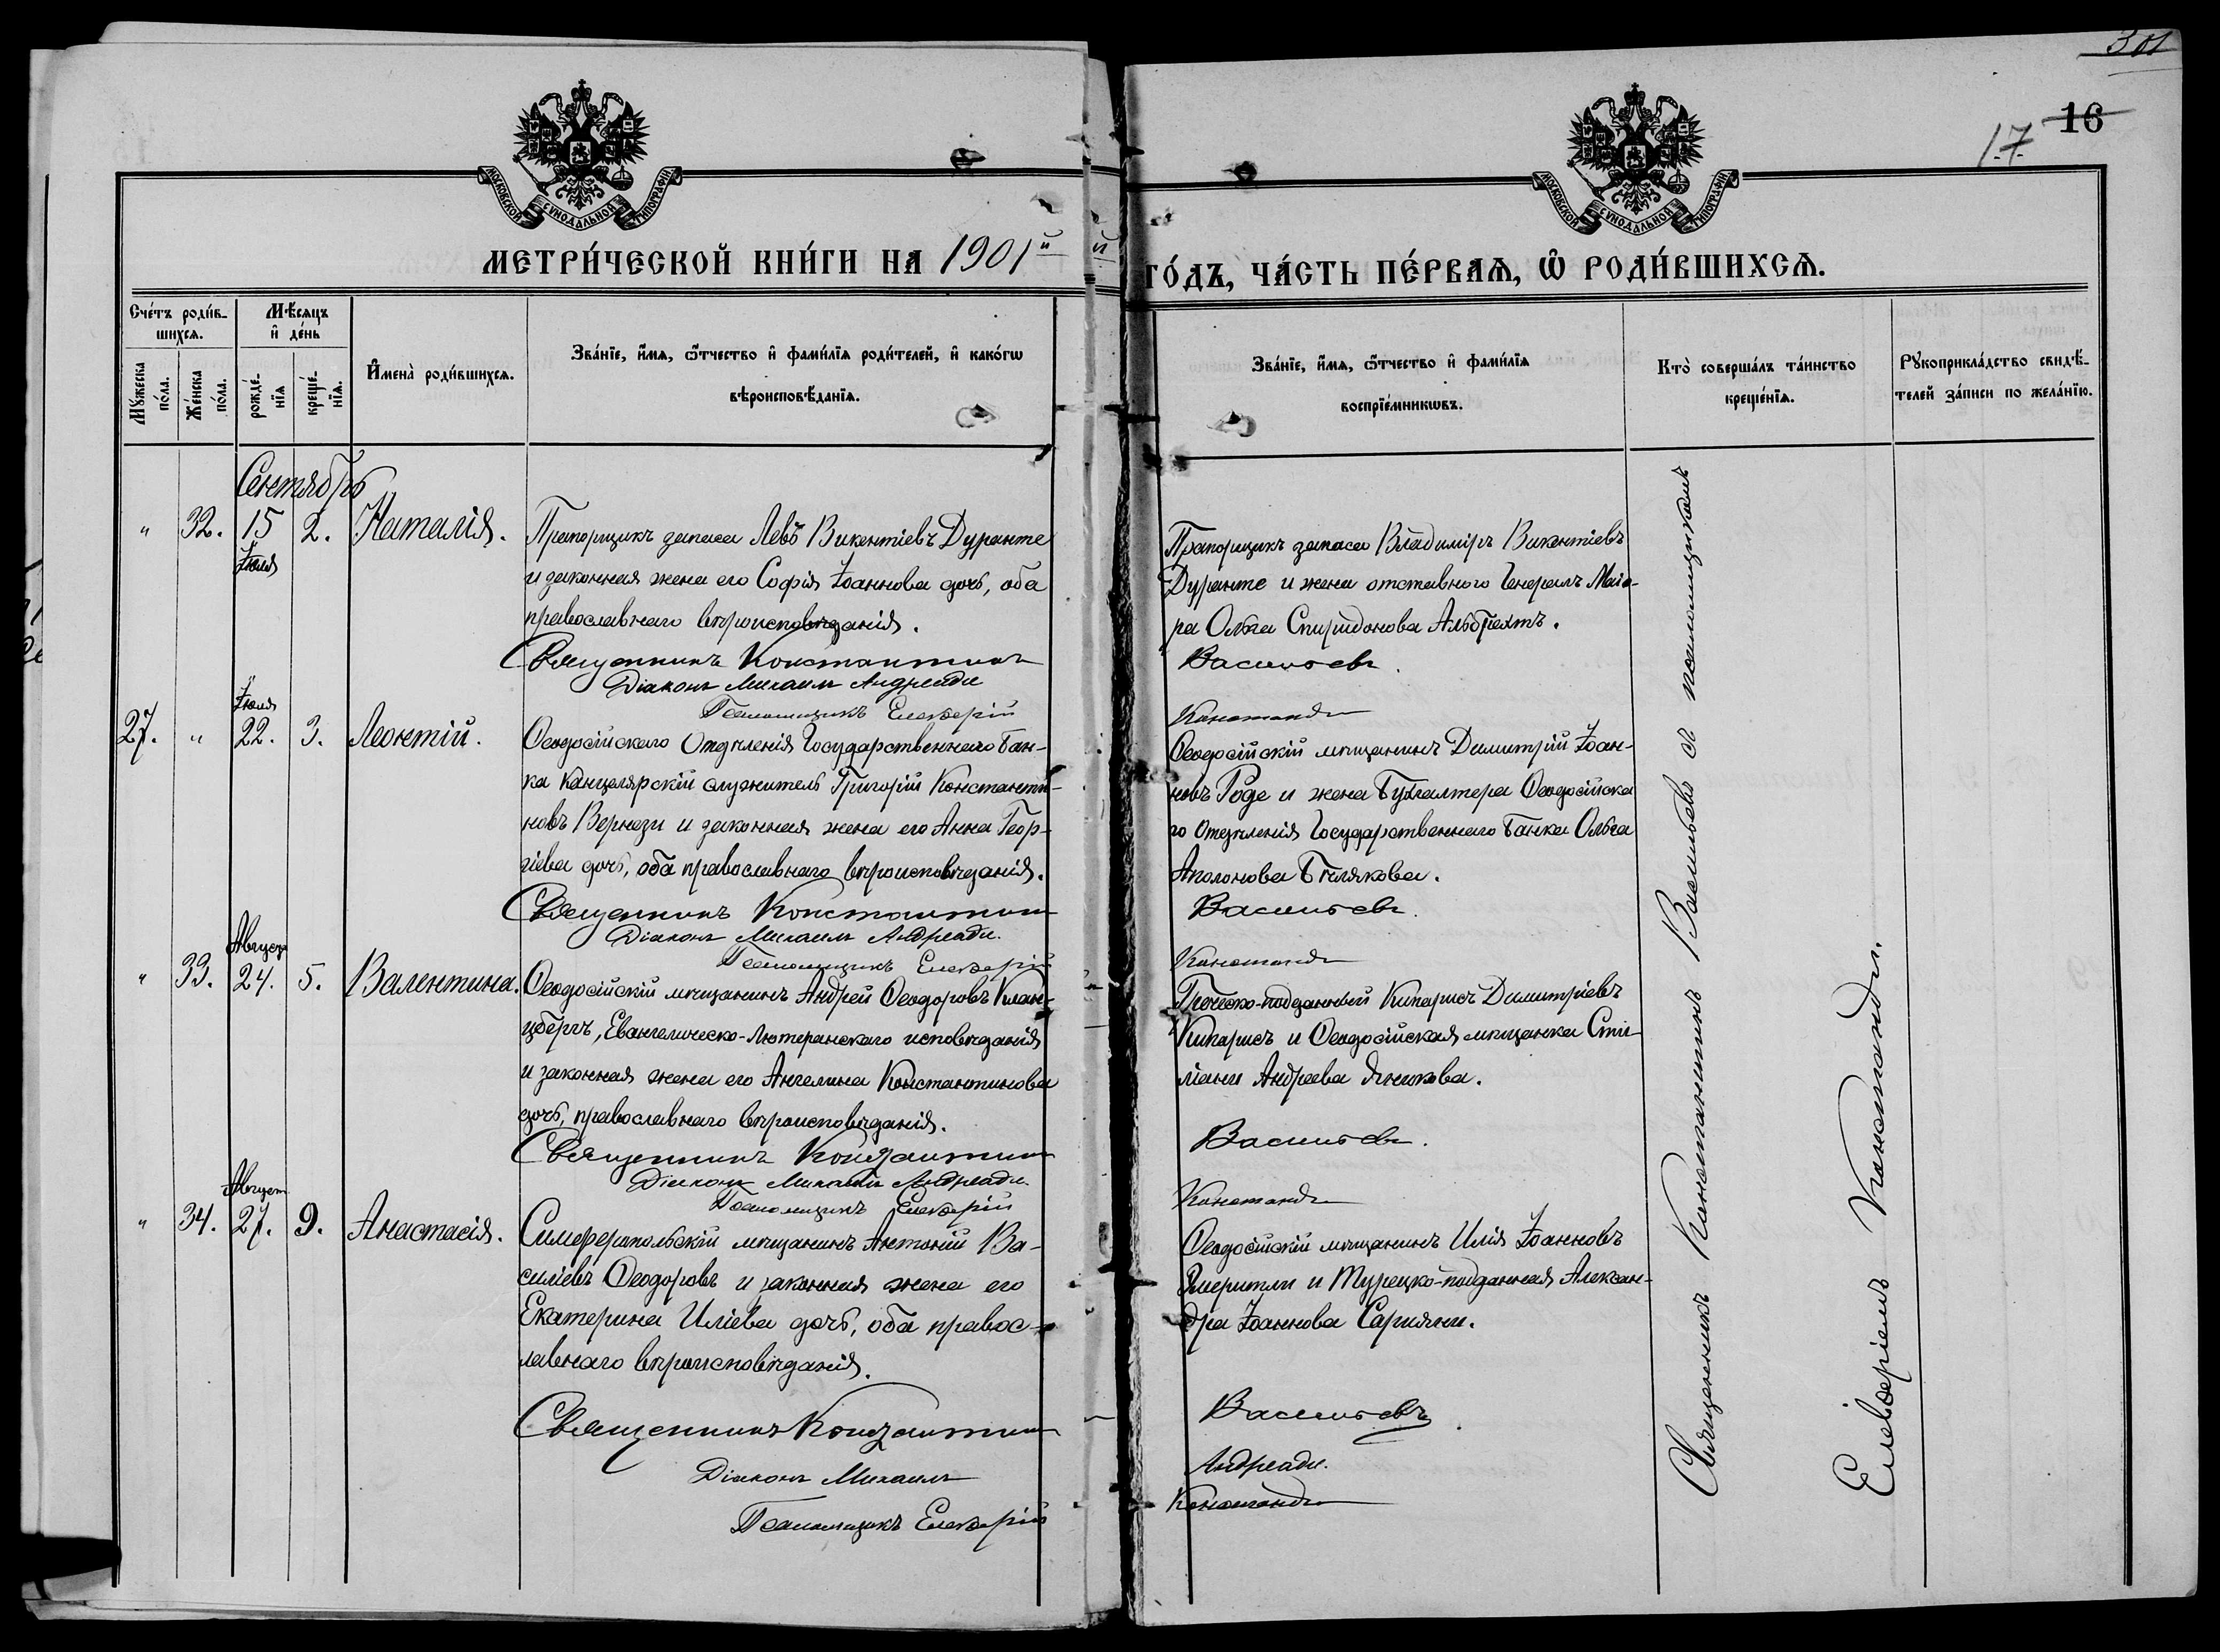 301
16
17.
МОСКОВСКОЙ СѴНОДАЛЬНОЙ ТИПОГРАФІИ
МОСКОВСКОЙ СѴНОДАЛЬНОЙ ТИПОГРАФІИ
МЕТРИ́ЧЕСКОЙ КНИ́ГИ НА 1901й
ГО́ДЪ, ЧА́СТЬ ПЕ́РВАѦ, Ѽ РОДИ́ВШИХСѦ.
Счéтъ роди́в-
шихсѧ.
Мꙋ́жеска
по́ла.
Же́нска
по́ла.
Мѣ́сѧцъ
и҆ де́нь
рожде́-
нїѧ
креще́-
нїѧ.
И҆мена̀ роди́вшихсѧ.
Зва́нїе, и҆́мѧ, ѻ҆́тчество и҆ фами́лїѧ роди́телей, и҆ како́гѡ
вѣроисповѣ́данїѧ.
Зва́нїе, и҆́мѧ, ѻ҆́тчество и҆ фами́лїѧ
воспрїе́мникѡвъ.
Кто̀ соверша́лъ та́инство
креще́нїѧ.
Рꙋкоприкла́дство свидѣ́-
телей за́писи по жела́нїю.
Сентябрь
" 32. 15 2. Наталія.
Іюля
Прапорщикъ запаса Левъ Викентіевъ Дуранте
и законная жена его Софія Іоаннова дочь, оба
православнаго вѣроисповѣданія.
Священникъ Константинъ
Діаконъ Михаилъ Андреади
Псаломщикъ Елевѳерій
Прапорщикъ запаса Владиміръ Викентіевъ
Дуранте и жена отставного Генералъ Маіо-
ра Ольга Спиридонова Альбрехтъ.
Васильевъ.
Конотанди
Іюля
27. " 22. 3. Леонтій.
Ѳеодосійскаго Отдѣленія Государственнаго Бан-
ка канцелярскій служитель Григорій Константи-
новъ Вернези и законная жена его Анна Геор-
гіева дочь, оба православнаго вѣроисповѣданія.
Священникъ Константинъ
Діаконъ Михаилъ Андреади.
Псаломщикъ Елевѳерій
Ѳеодосійскій мѣщанинъ Димитрій Іоан-
новъ Роде и жена Бухгалтера Ѳеодосійска
го Отдѣленія Государственнаго Банка Ольга
Аполонова Бѣлякова.
Васильевъ.
Конотанди
Август
" 33. 24. 5. Валентина.
Ѳеодосійскій мѣщанинъ Андрей Ѳеодоровъ
Евангелическо-Лютеранскаго исповѣданія
и законная жена его Ангелина Константинова
дочь, православнаго вѣроисповѣданія.
Священникъ Константинъ
Діаконъ Михаилъ Андреади.
Псаломщикъ Елевѳерій
Греческо-подданный Кипарисъ Димитріевъ
Кипарисъ и Ѳеодосійская мѣщанка Сти-
ліани Андреева
Васильевъ.
Конотанди
Август
" 34. 27. 9. Анастасія.
Симферопольскій мѣщанинъ Антоній Ва-
силіевъ Ѳеодоровъ и законная жена его
Екатерина Иліева дочь, оба правос-
лавнаго вѣроисповѣданія.
Священникъ Константинъ
Діаконъ Михаилъ
Псаломщикъ Елевѳерій
Ѳеодосійскій мѣщанинъ Илія Іоанновъ
и Турецко-подданная Алексан-
дра Іоаннова Сарияни.
Васильевъ.
Андреади.
Конотанди
Священникъ Константинъ Васильевъ съ псаломщикомъ
Елевѳеріемъ Конотанди.